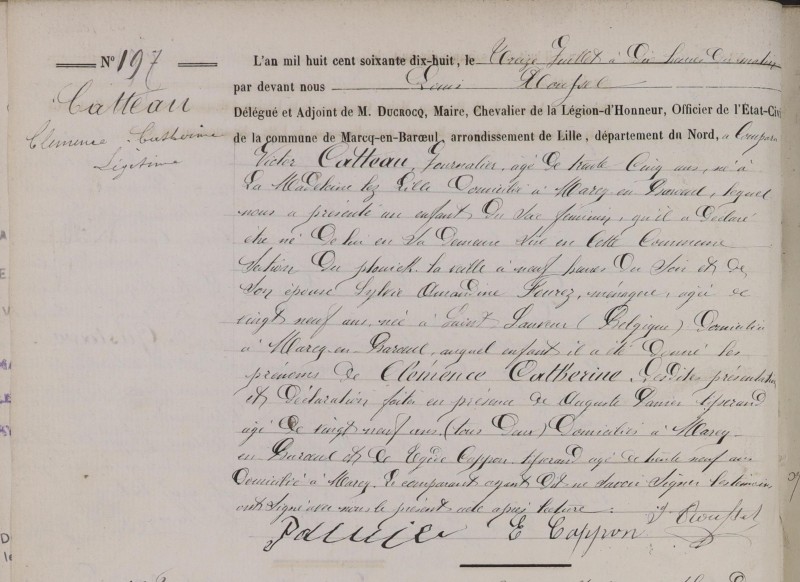 N° 197
Catteau
Clemence Catherine
Légitime
L'an mil huit cent soixante dix-huit, le treize Juillet à Dix heures du matin
par devant nous Louis
Délégué et Adjoint de M. DUCROCQ, Maire, Chevalier de la Légion-d'Honneur, Officier de l'Etat-Civi
de la commune de Marcq-en-Barœul, arrondissement de Lille, département du Nord, a Compara
Victor Catteau, Journalier, agé de trente Cinq ans, né à
La Madeleine lez Lille Domicilié à Marcq en Baroeul, lequel
nous a présenté un enfant Du Sexe féminin, qu'il a Déclaré
être né De lui en Sa Demeure Sise en Cette Commune
Section Du plouick. la veille à neuf heures Du Soir et de
Son épouse Sylvie Amandine Fourez, ménagère, agée de
vingt neuf ans, née à Saint Sauveur (Belgique) Domiciliée
à Marcq-en-Baroeul, auquel enfant il a été Donné les
prénoms de Clémence Catherine. Lesdites présentation
et Déclaration faites en présence de Auguste
agé De vingt neuf ans (tous Deux) Domiciliés à Marcq-
en Baroeul et de Cappon agé de trente neuf ans
Domicilié à Marcq. Le comparant ayant Dit ne Savoir Signer les témoins
ont Signé avec nous le présent acte après lecture :
E Cappon